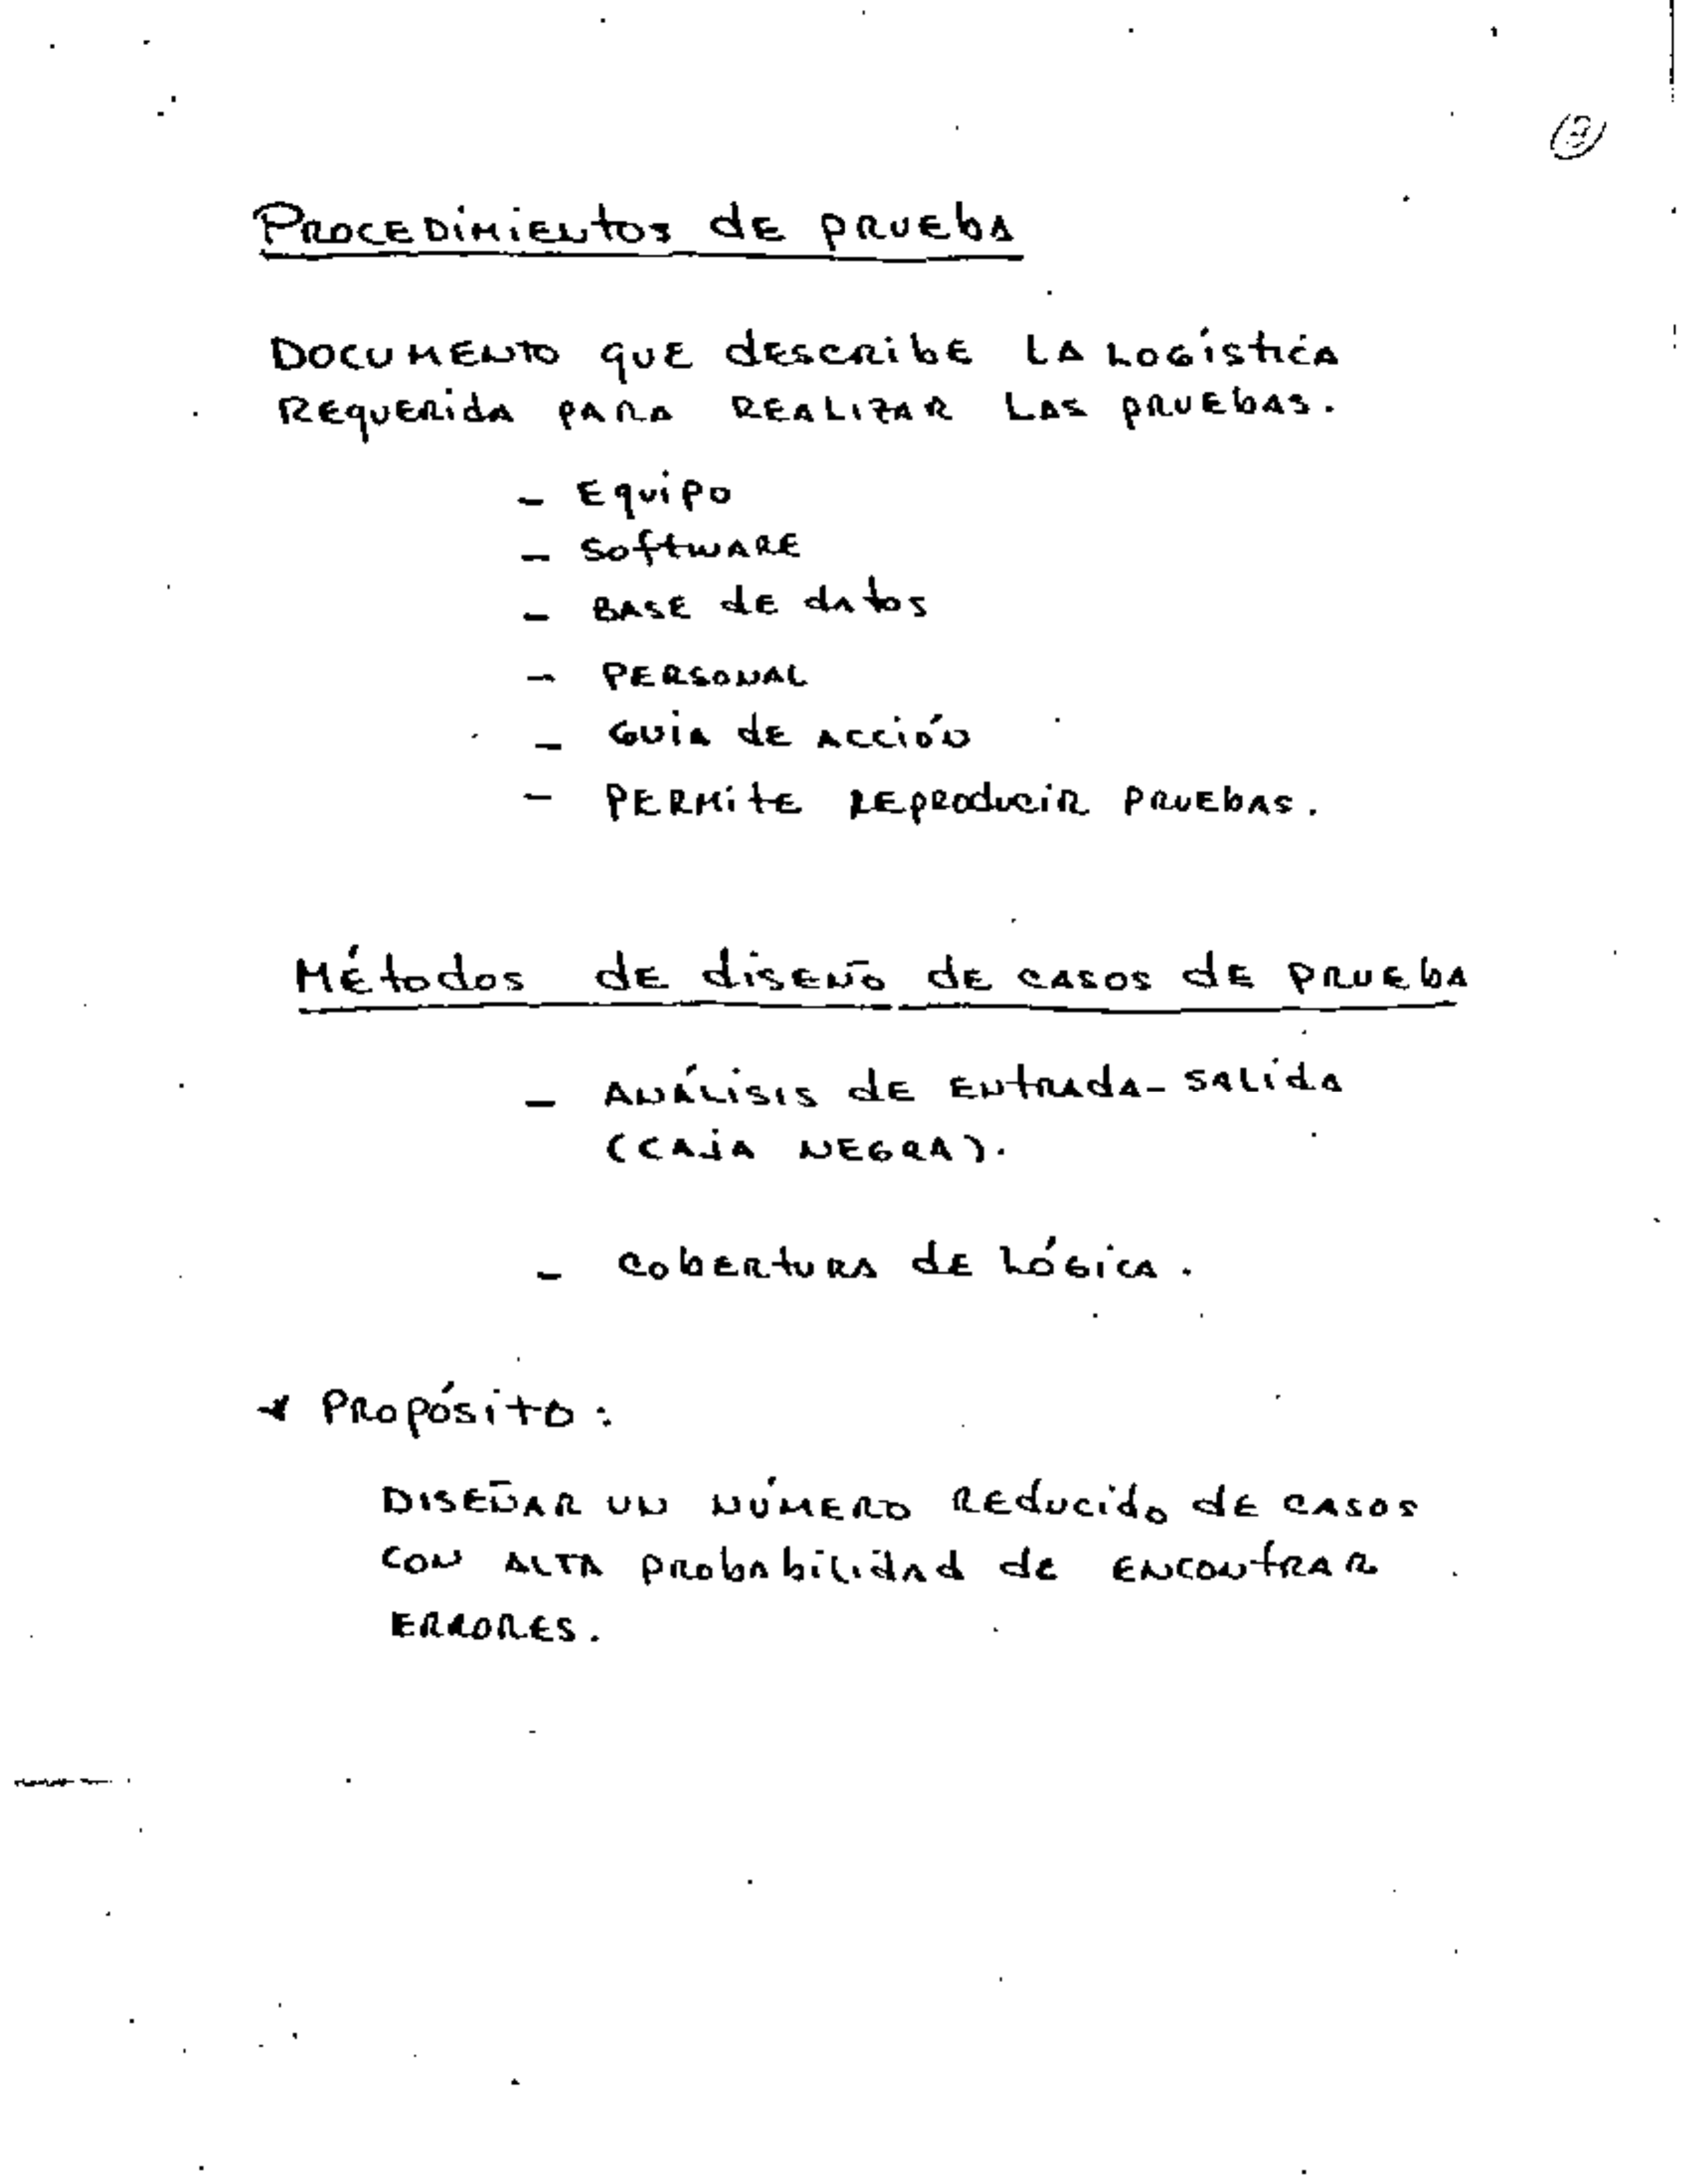 Procedimientos de prueba
Documento que describe la logística
requerida para realizar las pruebas.
- Equipo
- Software
- Base de datos
- Personal
- Guia de acción
- Permite reproducir pruebas.
Métodos de diseño de casos de prueba
- Análisis de entrada-salida
(caja negra).
- Cobertura de lógica.
* Propósito:
Diseñar un número reducido de casos
con alta probabilidad de encontrar
errores.